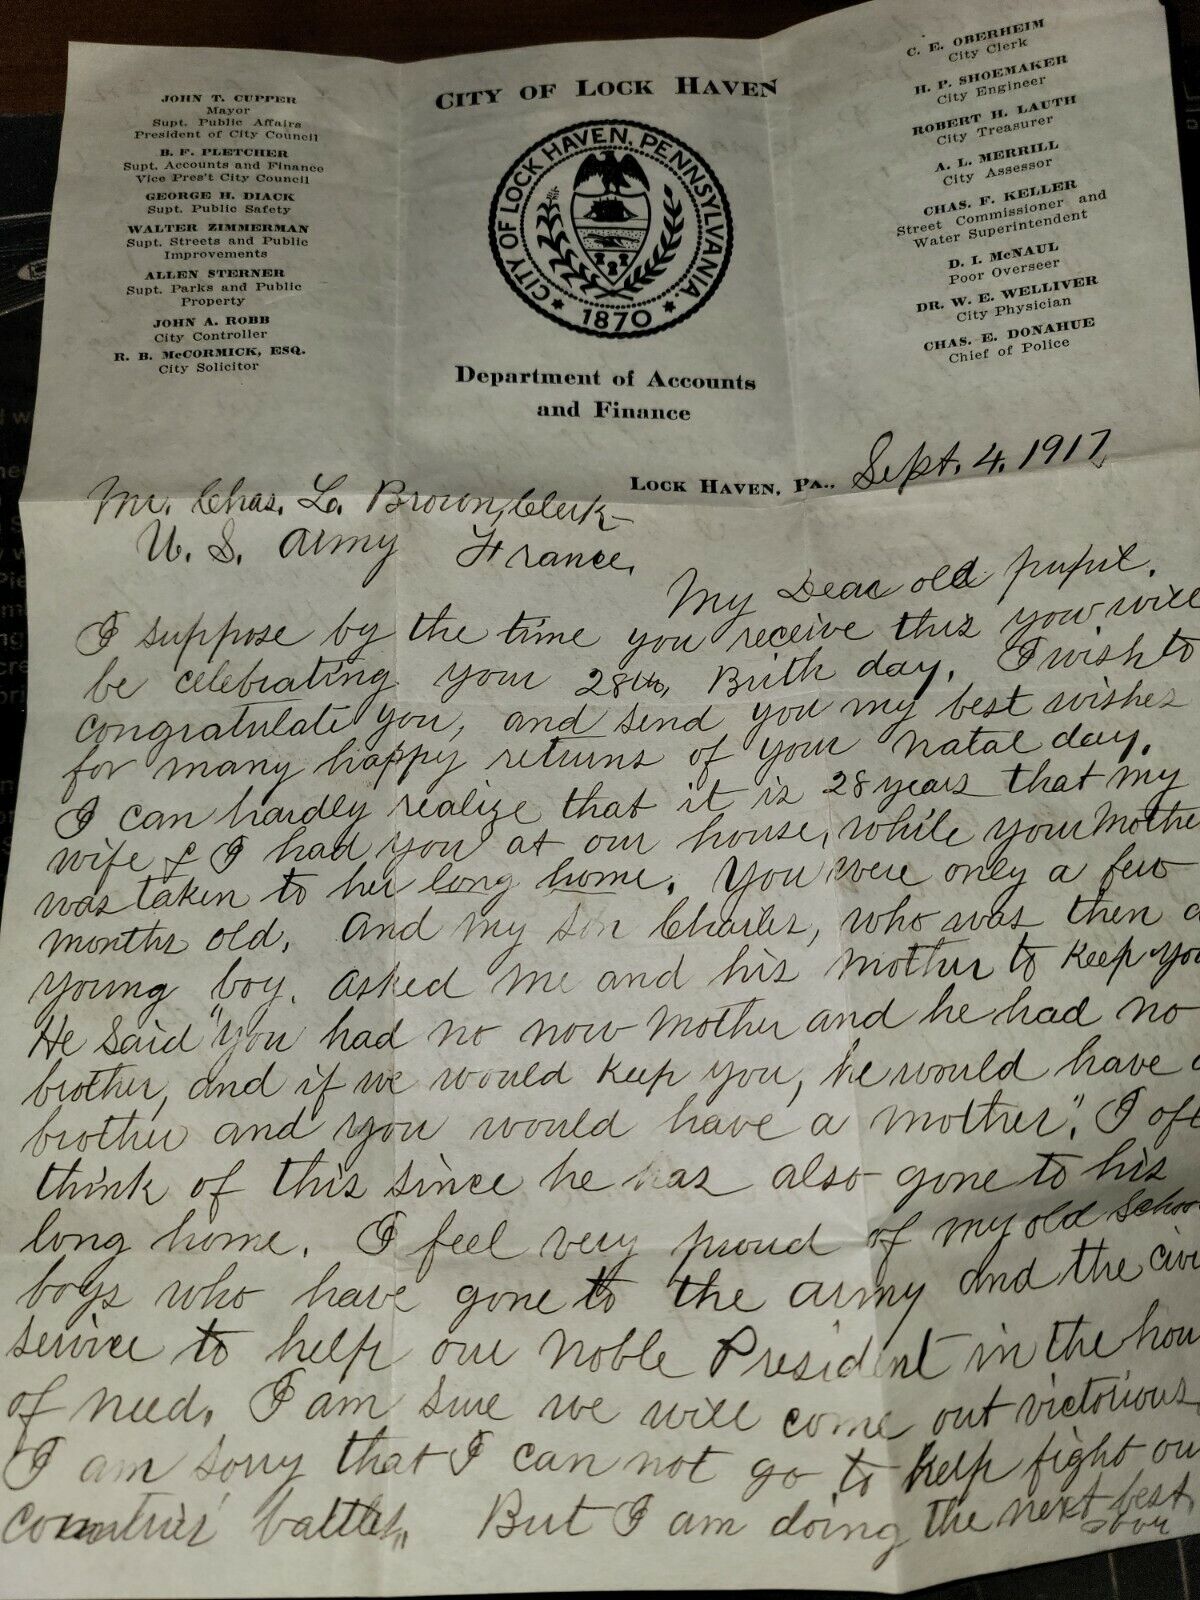 CITY OF LOCK HAVEN
JOHN T. CUPPER
Mayor
Supt. Public Affairs
President of City Council
B. F. PLETCHER
Supt. Accounts and Finance
Vice Pres't City Council
GEORGE H. DIACK
Supt. Public Safety
WALTER ZIMMERMAN
Supt. Streets and Public
Improvements
ALLEN STERNER
Supt. Parks and Public
Property
JOHN A. ROBB
City Controller
R. B. McCORMICK, ESQ.
City Solicitor
CITY OF LOCK HAVEN, PENNSYLVANIA.
1870
Department of Accounts
and Finance
C. E. OBERHEIM
City Clerk
H. P. SHOEMAKER
City Engineer
ROBERT H. LAUTH
City Treasurer
A. L. MERRILL
City Assessor
CHAS. F. KELLER
Street Commissioner and
Water Superintendent
D. I. McNAUL
Poor Overseer
DR. W. E. WELLIVER
City Physician
CHAS. E. DONAHUE
Chief of Police
LOCK HAVEN, PA., Sept. 4. 1917
Mr. Chas. L. Brown, Clerk
U. S. Army France.
My Dear old pupil.
I suppose by the time you receive this you will
be celebrating your 28th, Birth day. I wish to
congratulate you, and send you my best wishes
for many happy returns of your natal day.
I can hardly realize that it is 28 years that my
wife & I had you at our house, while your Mothe
was taken to her long home. You were only a few
months old. And my son Charles, who was then a
young boy. asked me and his mother to keep you
He said "you had no now mother and he had no
brother, and if we would keep you, he would have a
brother and you would have a mother". I oft
think of this since he has also gone to his
long home. I feel very proud of my old school
boys who have gone to the army and the civi
service to help our noble President in the hou
of need. I am sure we will come out victorious
I am sorry that I can not go to help fight ou
countries' battles. But I am doing the next best
over